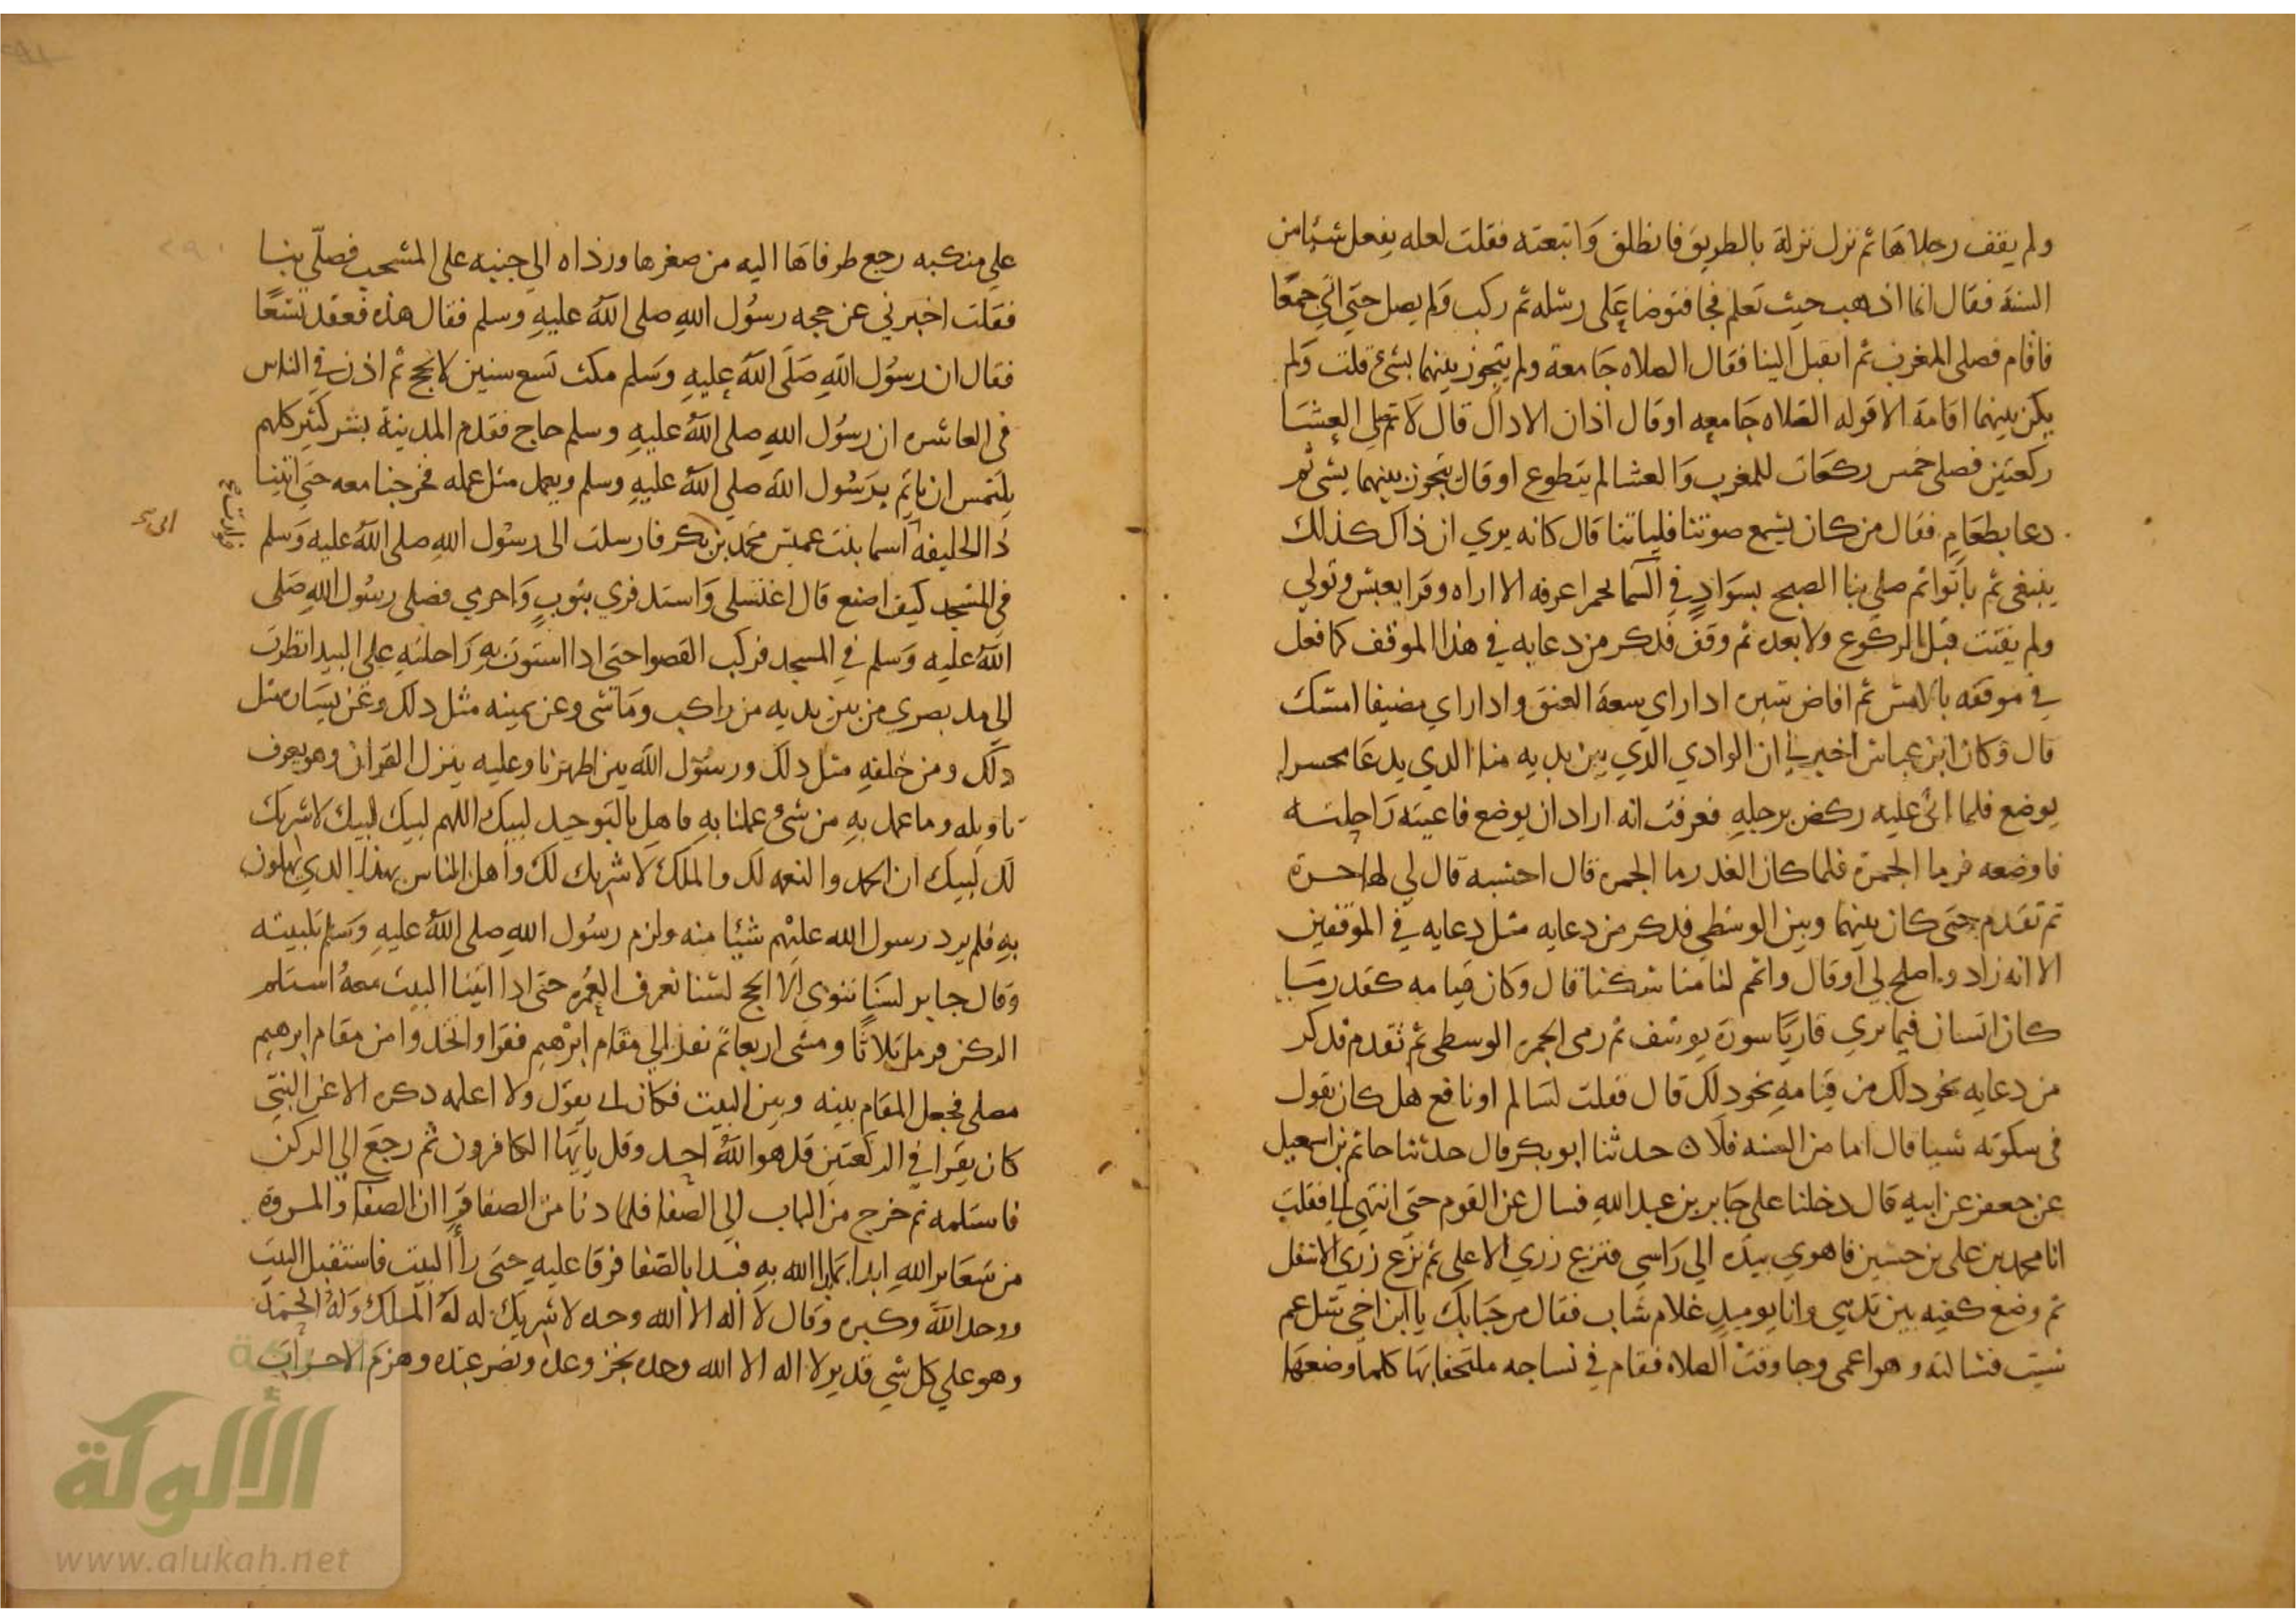 ولم يقف رجلاها ثم نزل نزلة بالطريق فانطلق واتبعته فقلت لعله يفعل شيئا من
السنة فقال انما اذهب حيث تعلم فجا فتوضا على رسله ثم ركب ولم يصل حتى اتى جمعا
فاقام فصلى المغرب ثم انقبل الينا فقال الصلاه جامعة ولم يتجوز بينهما بشئ قلت ولم
يكن بينهما اقامة الا قوله الصلاه جامعه او قال اذان الا دال قال لا ثم صلى العشا
ركعتين فصلى خمس ركعات للمغرب والعشا لم يتطوع او قال يتجوز بينهما بشى ثم
دعا بطعام فقال من كان يسمع صوتنا فلياتنا قال كانه يري ان ذاك كذلك
ينبغى ثم باتوا ثم صلى بنا الصبح بسواد في السما لحمرا عرفه الا اراه وقرا بعبس وتولي
ولم يقنت قبل الركوع ولا بعده ثم وقف فذكر من دعايه في هذا الموقف كما فعل
في موقفه بالامس ثم افاض سيره ادا راي سعة العنق وادا راي مضيقا امسك
قال وكان ابن عباس اخبرني ان الوادي الذي بين يديه منا الدي يدعا محسرا
يوضع فلما اتى عليه ركض برجله فعرفت انه اراد ان يوضع فاعيته راحلته
فاوضعه فرما الجمرة فلما كان الغد رما الجمره قال احسبه قال لي
ثم تقدم حتى كان بينها وبين الوسطى فدكر من دعايه مثل دعايه في الموقفين
الا انه زاد واصلح لي او قال واتمم لنا مناسكنا قال وكان قيامه كقدر ما
كان انسان فيما يري قاريا سورة يوسف ثم رمى الجمره الوسطى ثم تقدم فدكر
من دعايه نحو دلك من قيامه نحو دلك قال فقلت لسالم او نافع هل كان يقول
فى سكوته شيا قال اما من السنه فلا ه حدثنا ابو بكر قال حدثنا حاتم بن اسمعيل
عن جعفر عن ابيه قال دخلنا على جابر بن عبد الله فسال عن القوم حتى انتهى الي فقلت
انا محمد بن على بن حسين فاهوي بيده الي راسي فنزع زري الاعلى ثم نزع زري الاسفل
ثم وضع كفيه بين ثديي وانا يوميد غلام شاب فقال مرحبا بك يا ابن اخي سل عم
شيت فسالته وهو اعمى وجا وقت الصلاه فقام في نساجه ملتحفا بها كلما وضعها
على منكبه رجع طرفاها اليه من صغرها ورداه الي جنبه على المشجب فصلى بنا
فقلت اخبرني عن حجه رسول الله صلى الله عليه وسلم فقال هذه فعقد تسعا
فقال ان رسول الله صلى الله عليه وسلم مكث تسع سنين لا يحج ثم اذن في الناس
فى العاشره ان رسول الله صلى الله عليه وسلم حاج فقدم المدينة بشر كثير كلهم
يلتمس ان ياتم برسول الله صلى الله عليه وسلم ويعمل مثل عمله فخرجنا معه حتى اتينا
ذا الحليفه اسما بنت عميس محمد بن بكر فارسلت الى رسول الله صلى الله عليه وسلم
في المسجد كيف اصنع قال اغتسلي واستدفري بثوب واحرمي فصلى رسول الله صلى
الله عليه وسلم في المسجد فركب القصوا حتى ادا استوت به راحلته على البيدا نظرت
الى مد بصري من بين يديه من راكب وماشى وعن يمينه مثل دلك وعن يساره مثل
دلك ومن خلفه مثل دلك ورسول الله بين اظهرنا وعليه ينزل القران وهو يعرف
تاويله وما عمل به من شئ عملنا به فاهل بالتوحيد لبيك اللهم لبيك لبيك لا شريك
لك لبيك ان الحمد والنعمه لك والملك لا شريك لك واهل الناس بهذا الدي يهلون
به فلم يرد رسول الله عليهم شيئا منه ولزم رسول الله صلى الله عليه وسلم تلبيته
وقال جابر لسنا ننوي الا الحج لسنا نعرف العمره حتى ادا اتينا البيت معه استلم
الركن فرمل ثلاثا ومشى اربعا ثم نفذ الي مقام ابرهيم فقرا واتخدوا من مقام ابرهيم
مصلى فجعل المقام بينه وبين البيت فكان ابي يقول ولا اعلمه دكره الا عن النبي
كان يقرا في الركعتين قل هو الله احد وقل يايها الكافرون ثم رجع الي الركن
فاستلمه ثم خرج من الباب الي الصفا فلما دنا من الصفا قرا ان الصفا والمروة
من شعاير الله ابدا بما بدا الله به فبدا بالصفا فرقا عليه حتى راا البيت فاستقبل البيت
ووحد الله وكبره وقال لا اله الا الله وحده لا شريك له له الملك وله الحمد
وهو على كل شي قدير لا اله الا الله وحده نجز وعده ونصر عبده وهزم الاحزاب
الألوكة
www.alukah.net